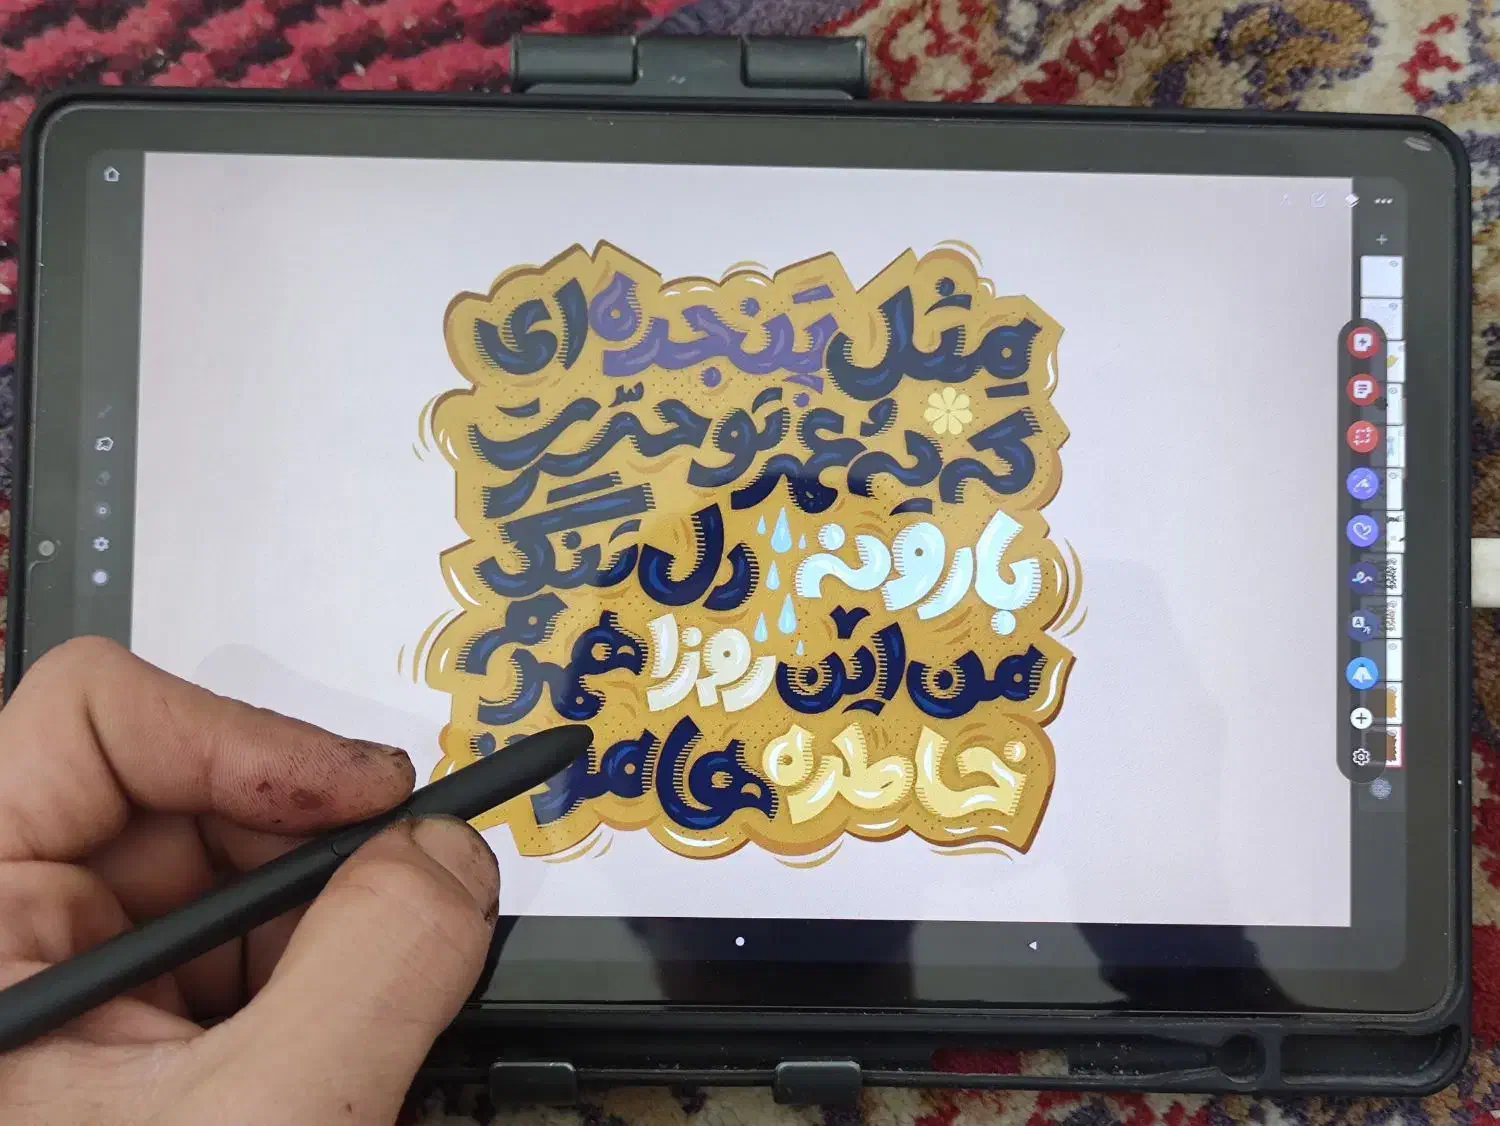 مِثل پَنجِره ای
که یه عُمر تو حسرت
بارونه دل تنگ
من این روزا همدم
خاطره هامون